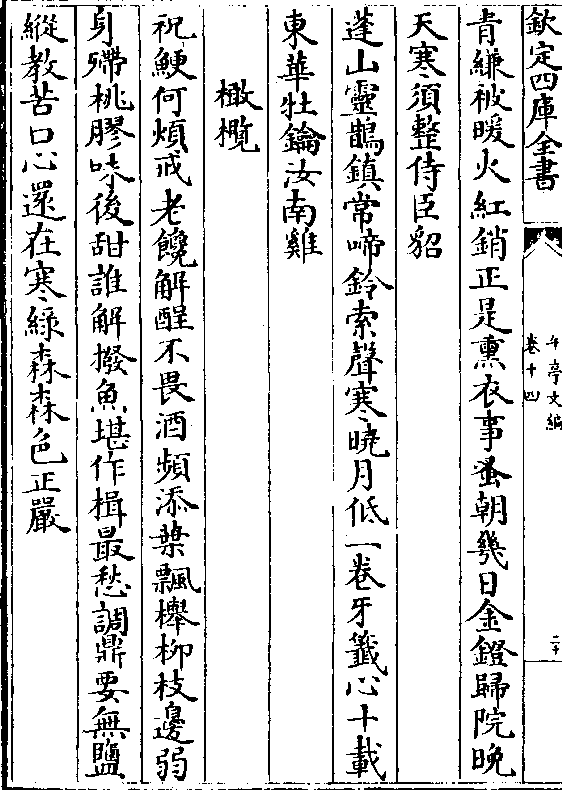 欽定四庫全書
午亭文編
卷十四
二十
青縑被暖火紅銷正是熏衣事蚤朝幾日金鐙歸院晚
天寒須整侍臣貂
蓬山靈鵲鎮常啼鈴索聲寒曉月低一卷牙籤心十載
東華牡鑰汝南雞
橄欖
祝鯁何煩戒老饞解酲不畏酒頻添葉飄櫸柳枝邊弱
身殢桃膠味後甜誰解撥魚堪作楫最愁調鼎要無鹽
縱教苦口心還在寒綠森森色正嚴